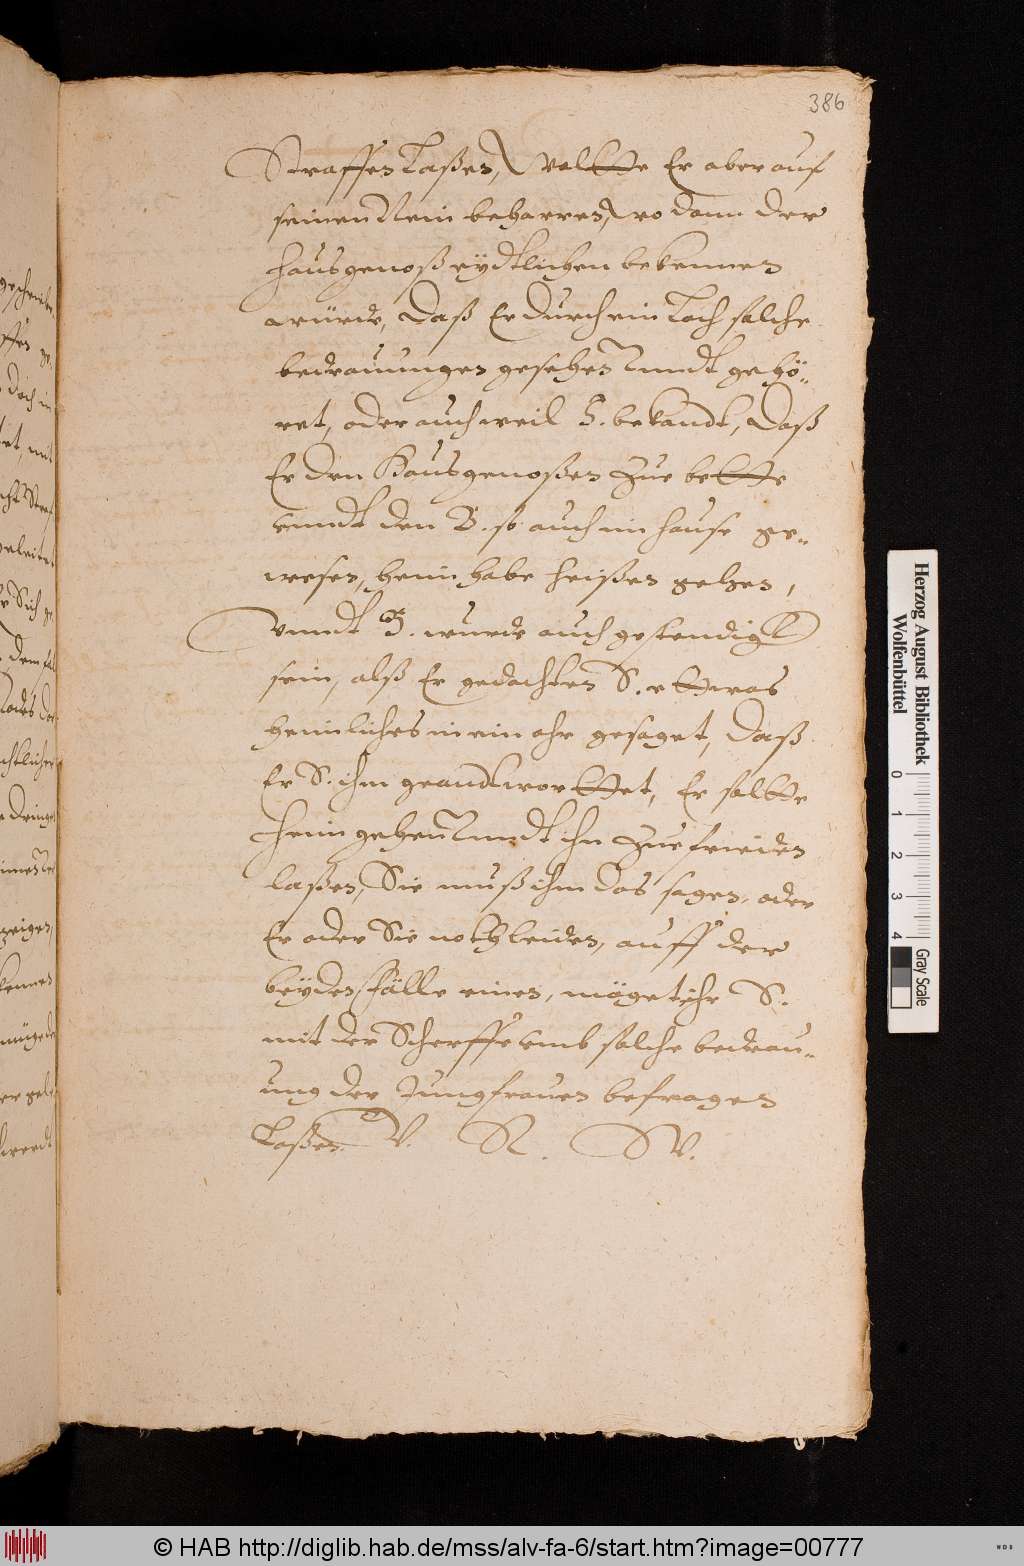 386
Straffen laßen, wolltte Er aber auf
seinen Nein beharren, wo dann der
hausgenoß eydtlichen bekennen
würde, daß Er durch ein loch solche
bedrauungen gesehen vnndt gehö-
ret, oder auch weil S. bekandt, daß
Er den Hausgenoßen zue bette
vnndt den B. so auch im hause ge-
wesen, heim habe heißen gehen,
vnndt B. wurde auch gestendig
sein, alß Er gedachten S. ettwas
heimliches in ein ohr gesaget, daß
Er S. ihm geandtworttet, Er soltte
heim gehen vnndt ihn zue frieden
laßen, Sie muß ihm das sagen, oder
Er oder Sie noth leiden, auff der
beyden fälle einen, möget ihr S.
mit der Scherffe vmb solche bedrau-
ung der Jungfrauen befragen
laßen. V. R. W.
Herzog August Bibliothek
Wolfenbüttel
0 1 2 3 4
Gray Scale
© HAB http://diglib.hab.de/mss/alv-fa-6/start.htm?image=00777